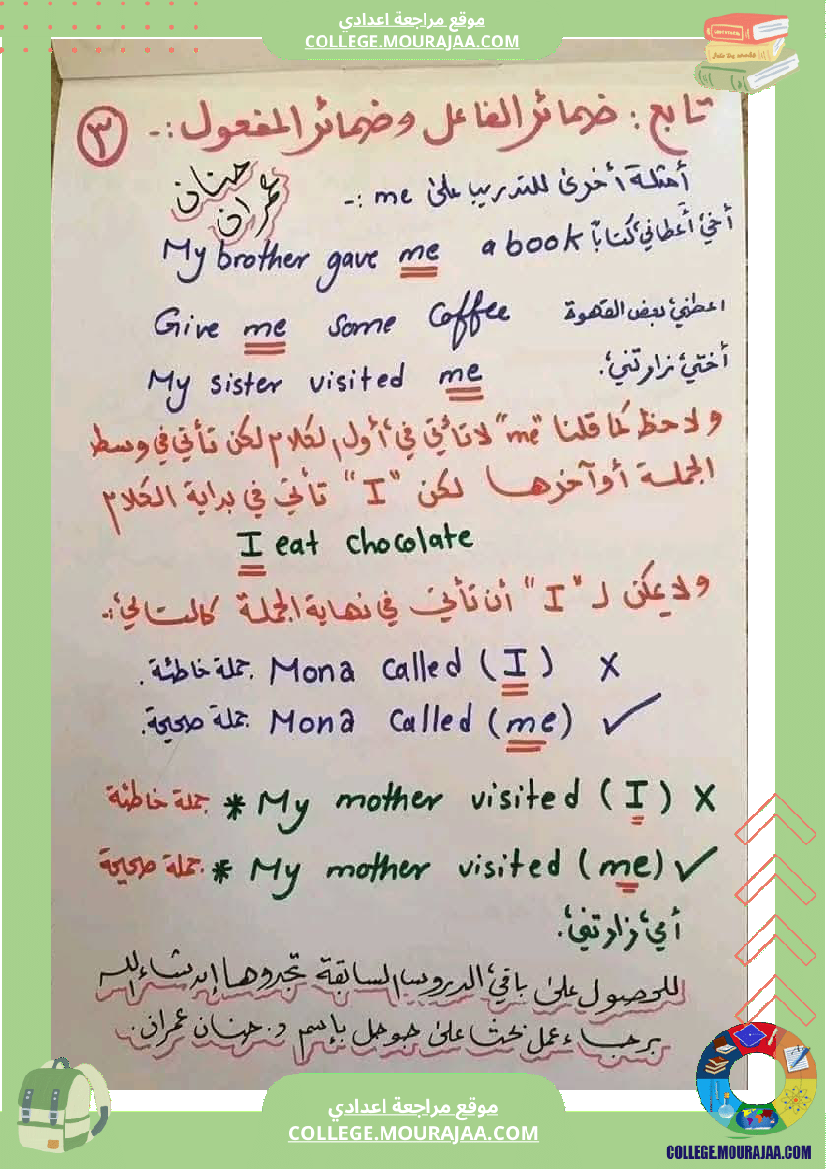 موقع مراجعة اعدادي
COLLEGE.MOURAJAA.COM
تابع : ضمائر الفاعل وضمائر المفعول :-
٣
حنان عمران
أمثلة أخرى للتدريب على me :-
My brother gave me a book أخي أعطاني كتاباً
Give me some coffee اعطني بعض القهوة
My sister visited me أختي زارتني.
ولاحظ كما قلنا "me" لا تأتي في أول الكلام لكن تأتي في وسط
الجملة أو آخرها لكن "I" تأتي في بداية الكلام
I eat chocolate
ولا يمكن لـ "I" أن تأتي في نهاية الجملة كالتالي :-
Mona called (I) X جملة خاطئة.
Mona called (me) ✓ جملة صحيحة.
* My mother visited (I) X جملة خاطئة
* My mother visited (me) ✓ جملة صحيحة
أمي زارتني.
للحصول على باقي الدروس السابقة تجدوها إن شاء الله
برجاء عمل بحث على جوجل بإسم د. حنان عمران.
موقع مراجعة اعدادي
COLLEGE.MOURAJAA.COM
COLLEGE.MOURAJAA.COM